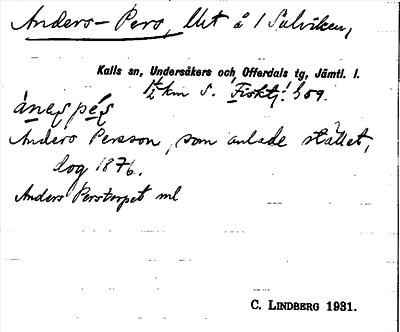 Anders-Pers, llet å i Salviken,
Kalls sn, Undersåkers och Offerdals tg, Jämtl. l.
½ km S. Fisktj. h 59.
Anders Persson, som anlade stället,
dog 1876.
Anders Perstorpet ml
C. LINDBERG 1931.